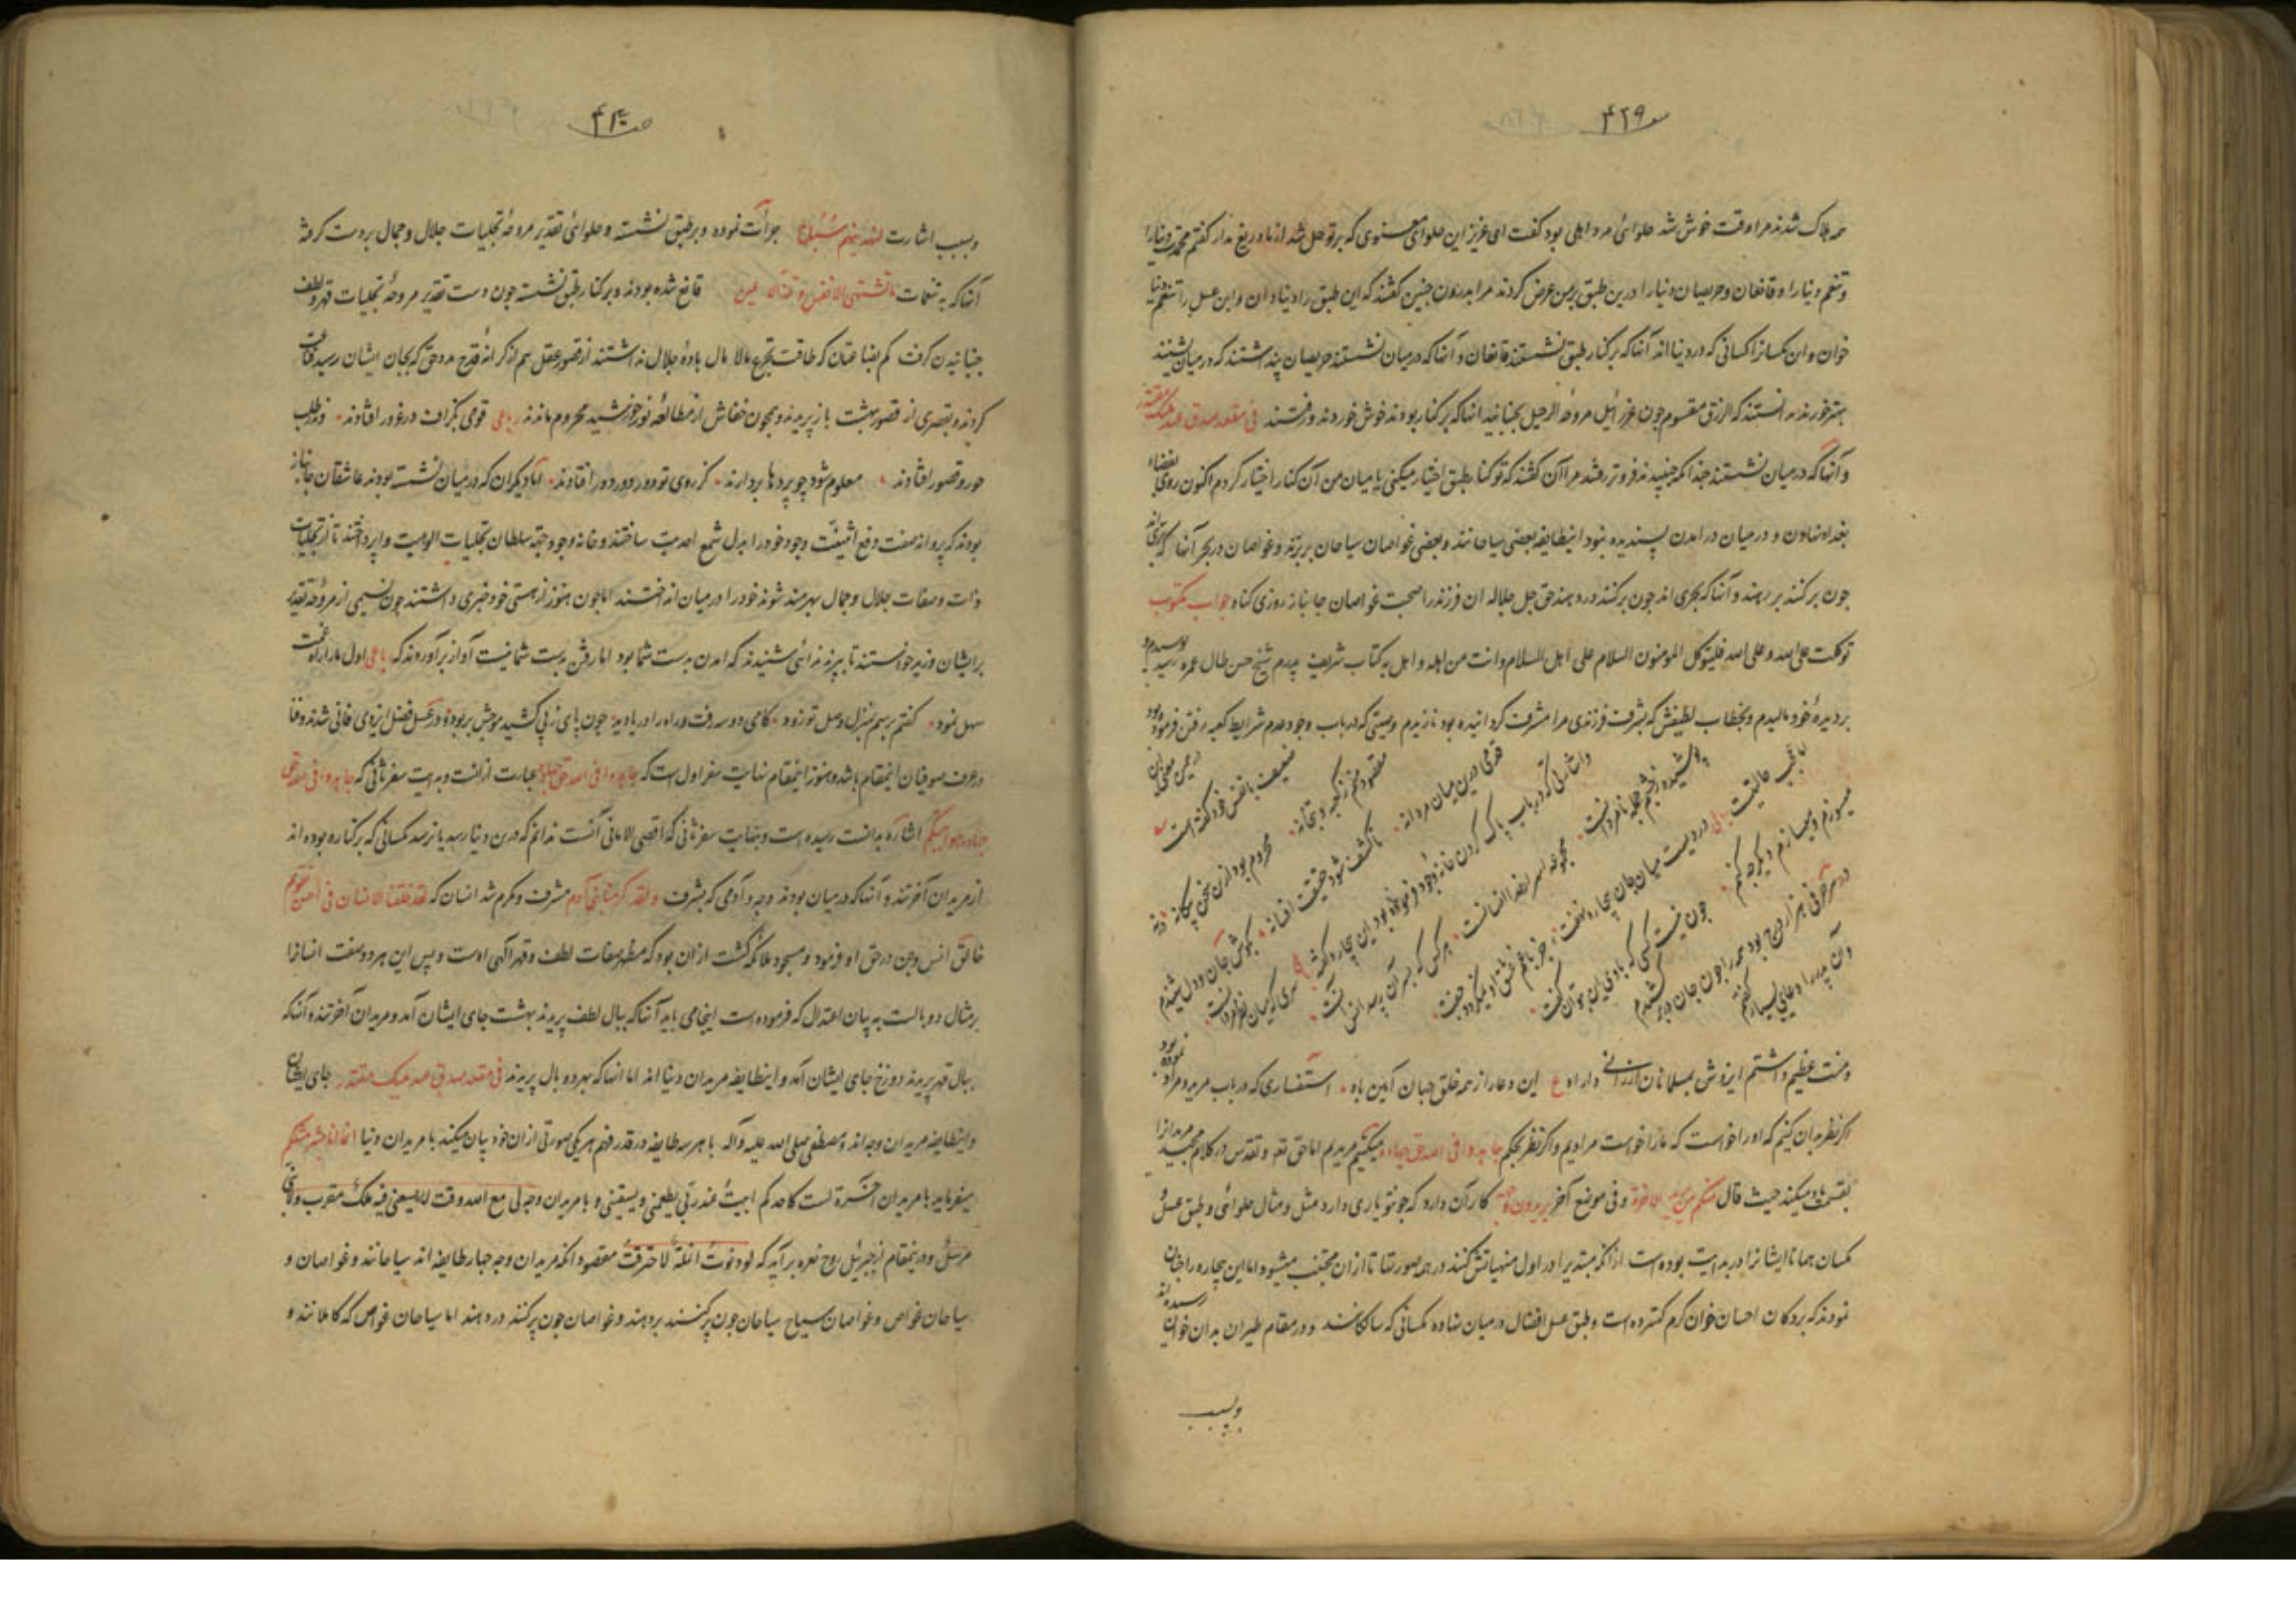 ۴۲۹
همه هلاک شدند مرا وقت خوش شد حلوائی مرد اهلی بود کفت ای عزیز این حلوای معنوی که بر تو حل شد از ما دریغ مدار کفتم
و تنعم دنیا را و قانعان و حریصان دنیا را درین طبق بر من عرض کردند مرا بدرون چنین کفتند که این طبق را دنیا دان و این عسل را تنعم دنیا
خوان و این مکسانرا کسانی که در دنیااند آنها که بر کنار طبق نشستند قانعان و آنها که در میان نشستند حریصان پنداشتند که در میان نشینند
بهتر خورند ندانستند که الرزق مقسوم چون عزرائیل مروحه الرحیل بجنبانید آنها که بر کنار بودند خوش خوردند و رفتند فی مقعد صدق عند ملیک مقتدر
و آنها که در میان نشستند چندانکه جنبیدند فروتر رفتند مرا آن کفتند که تو کنار طبق اختیار میکنی یا میان من آن کنار را اختیار کردم اکنون روی
بغداد نهادن و در میان در آمدن پسندیده نبود این طایفه بعضی سیاحانند و بعضی غواصان سیاحان بر برند و غواصان در بحر آنها که بری اند
چون بر کنند بر برهند و آنها که بحری اند چون بر کنند در دهند حق جل جلاله آن فرزند را صحبت غواصان جانباز روزی کناد جواب مکتوب
توکلت علی الله و علی الله فلیتوکل المومنون السلام علی اهل السلام وانت من اهله و اهل به کتاب شریف پدرم شیخ حسن طال عمره رسید بوسیدم و
بر دیده خود مالیدم و بخطاب لطیفش که بشرف فرزندی مرا مشرف کردانیده بود نازیدم و بیتی که در باب وجود عدم شرایط کعبه رفتن فرموده بود
در عین معنی این ضعیف با نفس خود کفته است
مقصود تویی ز کعبه و بتخانه
محروم بود ازین سخن بیکانه
قدمی درین میان مردانه
تا کشف شود حقیقت افسانه
بکوش جان و دل شنیدم
و اشارتی که در باب پاک کردن خانه وجود فرموده بود این بیچاره کفته
پوشیده ز چشم جمله نامردانست
مجموعه اسرار خدا انسانست
هر کس که بسر آن رسد انس آنست
اما عجب حالتیست
دردیست میان جان بیچاره نهفت
جز با غم عشق او نمیکردد جفت
میسوزم و میسازم و دیکر چه کنم
چون نیست کسی که با وی این بتوان کفت
در هر حرفی هزار درج بود همه را چون جان در بر کشیدم
و آن پدر را دعای بسیار کفتم
و منت عظیم داشتم ایزدش بمسلمانان ارزانی داراد ع این دعا را از همه خلق جهان آمین باد استفساری که در باب مرید و مراد نموده بود
اکر نظر بدان کنیم که او را خواست که ما را خواست مرادیم و اکر نظر بحکم جاهدوا فی الله حق جهاده میکنیم مریدیم اما حق تعالی و تقدس در کلام مجید مریدانرا
بقسمت یاد میکند حیث قال منکم من یرید الاخرة و فی موضع آخر یریدون وجهه کار آن دارد که چون تو یاری دارد مثل و مثال حلوائی و طبق عسل
مکسان همانا ایشانرا در بدایت بوده است از آنکه مبتدیرا در اول منهیاتش کنند در همه صورتها تا از آن مجتنب میشود اما این بیچاره را چنان
نمودند که بر دکان احسان خوان کرم کسترده است و طبق عسل افضال در میان نهاده مکسانی که سالکانند و در مقام طیران بدان خوان رسیده اند
وبسبب
۴۳۰
وبسبب اشارت لنهدینهم سبلنا جرأت نموده و بر طبق نشسته و حلوائی تقدیر مروحه تجلیات جلال و جمال بردست کرفته
آنها که به تنعمات ما تشتهی الانفس و تلذ الاعین قانع شده بودند و بر کنار طبق نشسته چون دست تقدیر مروحه تجلیات قهر و لطف
جنبانیدن کرفت کم بضاعتان که طاقت تجرع مالامال باده جلال نداشتند از قصور عقل هم از کرانه قدح مروحه که بجان ایشان رسید قناعت
کردند و بقصری از قصور بهشت باز پریدند و همچون خفاش از مطالعه نور خورشید محروم ماندند رباعی قومی بکزاف در غرور افتادند و ندر طلب
حور و قصور افتادند معلوم شود چو پردها بردارند کز روی تو دور دور دور افتادند اما دیکران که در میان نشسته بودند عاشقان جانباز
بودند که پروانه صفت دفع اثنینیت وجود خود را بدل شمع احدیت ساختند و خانه وجود جهت سلطان تجلیات الوهیت واپرداختند تا از تجلیات
ذات و صفات جلال و جمال بهره مند شوند خود را در میان انداختند اما چون هنوز از هستی خود خبری داشتند چون نسیمی از مروحه تقدیر
بر ایشان وزید خواستند تا بپرند ندائی شنیدند که آمدن بدست شما بود اما رفتن بدست شما نیست آواز برآوردند که رباعی اول ما را راه غمت
سهل نمود کفتم برسم بمنزل وصل تو زود کامی دو سه رفت و راه را دریا دید چون پای ز پی کشید موجش بربود در عسل فضل ایزدی فانی شدند و فنا
در عرف صوفیان اینمقام باشد و هنوز اینمقام نهایت سفر اول است که جاهدوا فی الله حق جهاده عبارت از آنست و بدایت سفر ثانی که جاهدوا فی الله حق
جهاده هو اجتبیکم اشاره بدانست رسیده است و بنهایت سفر ثانی که اقصی الامانی آنست ندانم که در دنیا رسد یا نرسد مکسانی که بر کناره بوده اند
از مریدان آخرتند و آنها که در میان بودند وجه و آدمی که بشرف ولقد کرمنا بنی آدم مشرف و مکرم شد انسان که لقد خلقنا الانسان فی احسن تقویم
خالق انس و جن در حق او فرمود و مسجود ملائکه کشت از آن بود که مظهر صفات لطف و قهر آلهی اوست و پس این هر دو صفت انسانرا
بر مثال دو بالست به بیان اعتدال که فرموده است اینجا می باید آنها که ببال لطف پریدند بهشت جای ایشان آمد و مریدان آخرتند و آنها که
ببال قهر پریدند دوزخ جای ایشان آمد و اینطایفه مریدان دنیااند اما آنها که بهر دو بال پریدند فی مقعد صدق عند ملیک مقتدر جای ایشان
و اینطایفه مریدان وجه اند و مصطفی صلی الله علیه و آله با هر سه طایفه در قدر فهم هر یکی صورتی از آن خود بیان میکند با مریدان دنیا انما انا بشر مثلکم
میفرماید با مریدان آخرة لست کاحدکم ابیت عند ربی یطعمنی و یسقینی و با مریدان وجه لی مع الله وقت لا یسعنی فیه ملک مقرب ولا نبی
مرسل و درینمقام از جبریل روح نعره برآید که لو دنوت انملة لاحترقت مقصود آنکه مریدان وجه چهار طایفه اند سیاحانند و غواصان و
سیاحان غواص و غواصان سیاح سیاحان چون پر کنند بر دهند و غواصان چون پر کنند در دهند اما سیاحان غواص که کاملانند و